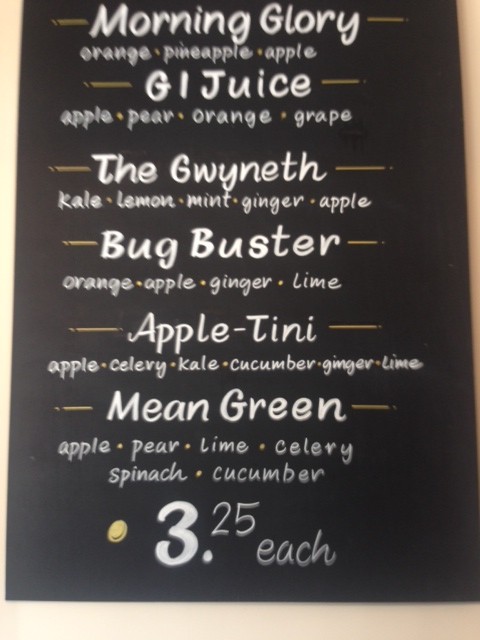 Morning Glory
orange • pineapple • apple
G I Juice
apple • pear • orange • grape
The Gwyneth
kale • lemon • mint • ginger • apple
Bug Buster
orange • apple • ginger • lime
Apple-Tini
apple • celery • kale • cucumber • ginger • lime
Mean Green
apple • pear • lime • celery
spinach • cucumber
3.25 each